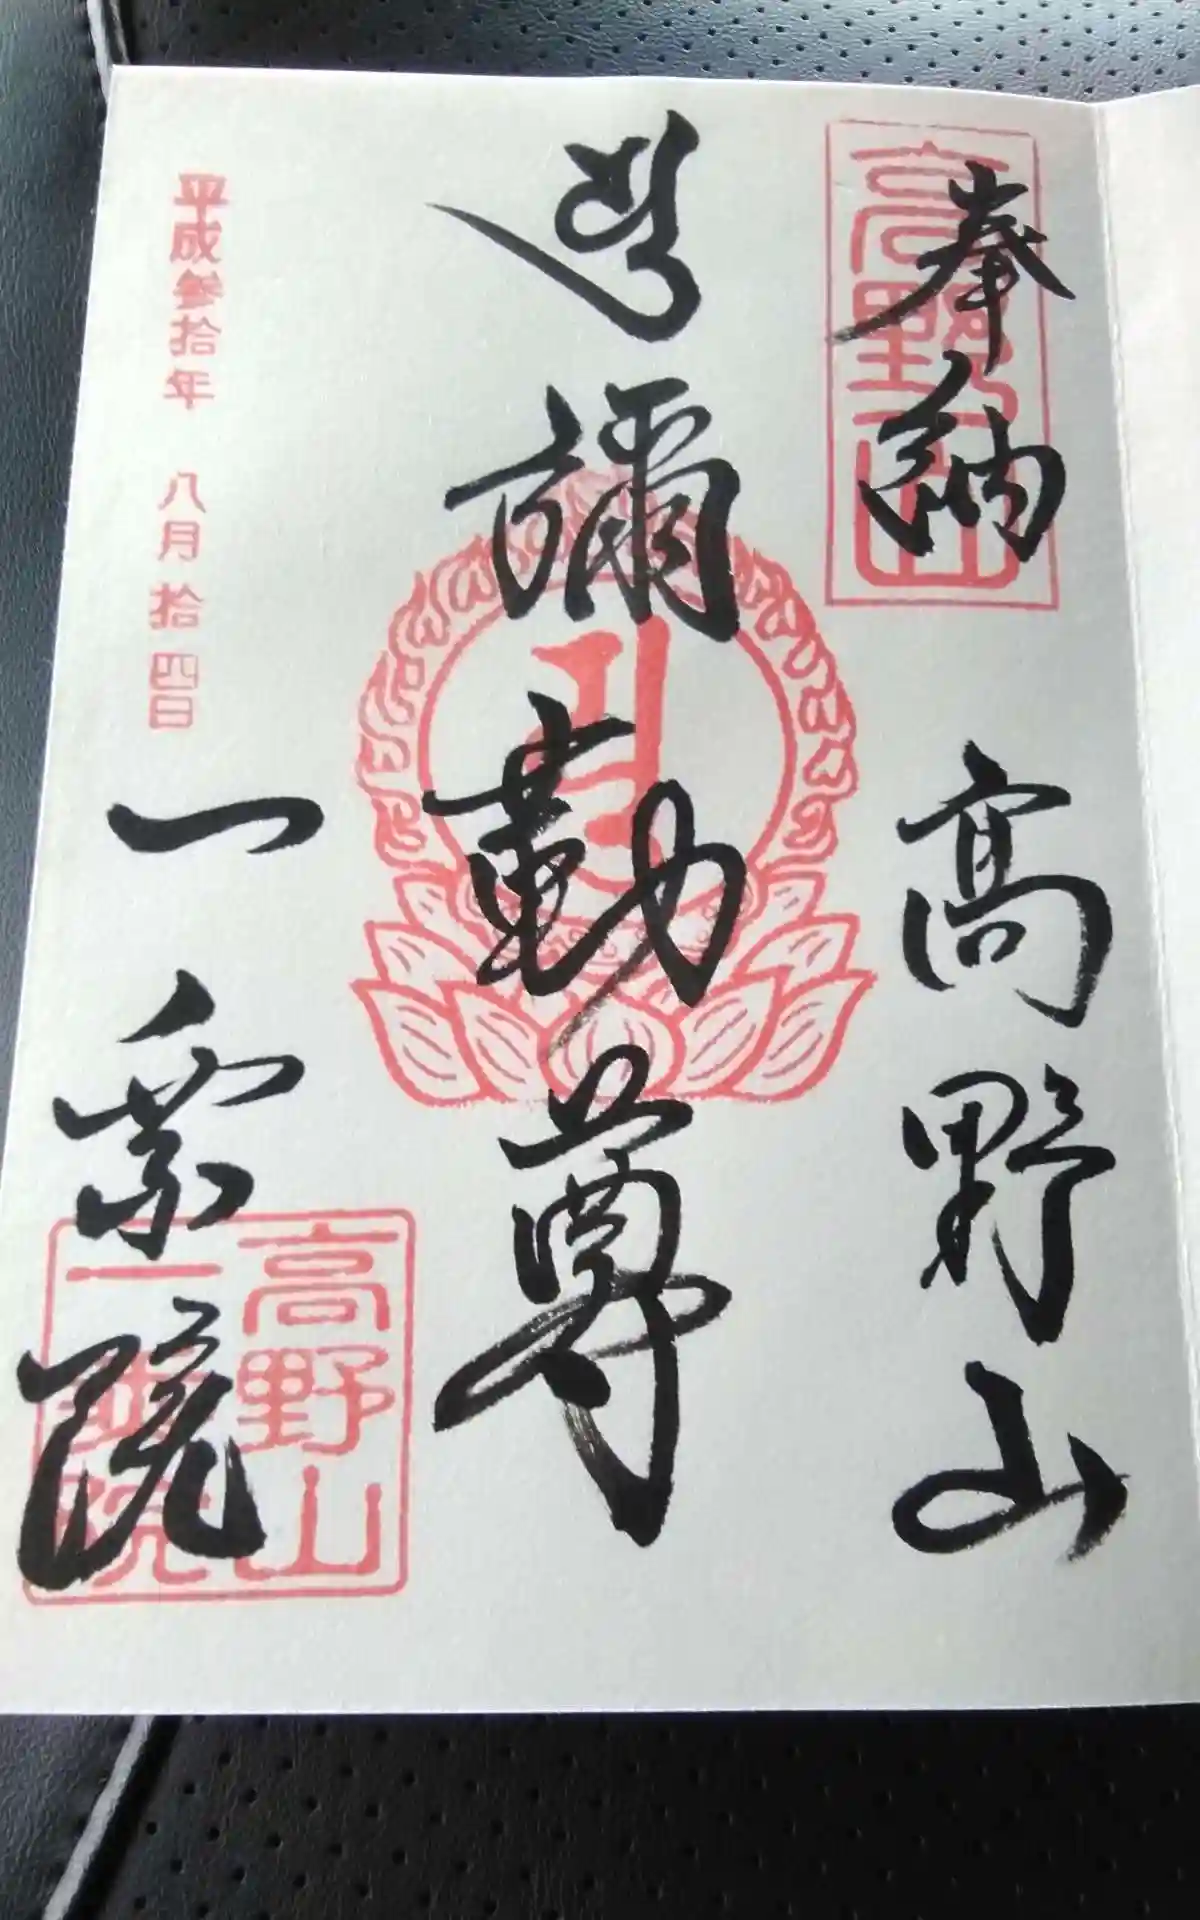 奉納
高野山
高野山
彌勒尊
平成参拾年 八月拾四日
一乘院
高野山
一乗院